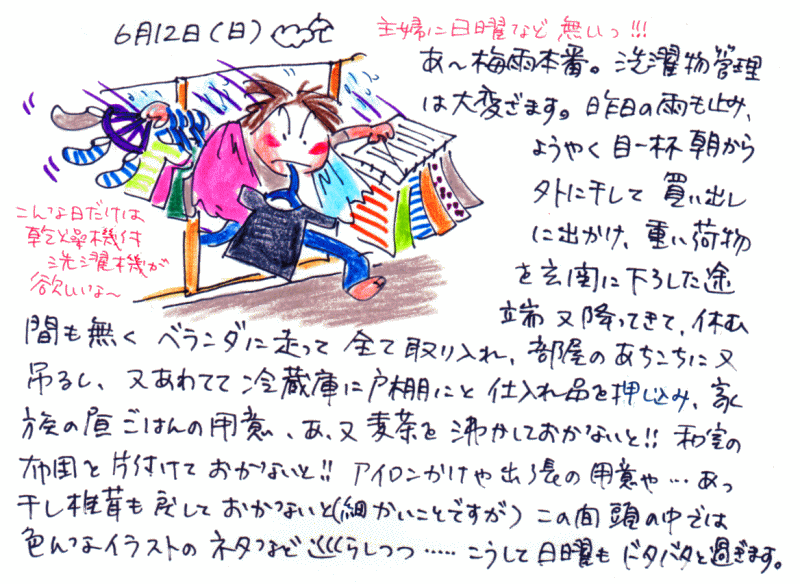 6月12日(日)
主婦に日曜など無いっ!!!
あ〜梅雨本番。洗濯物管理
は大変ざます。昨日の雨も止み、
ようやく目一杯朝から
外に干して買い出し
に出かけ、重い荷物
を玄関に下ろした途
端又降ってきて、休む
こんな日だけは
乾燥機付
洗濯機が
欲しいな〜
間も無くベランダに走って全て取り入れ、部屋のあちこちに又
吊るし、又あわてて冷蔵庫に戸棚にと仕入れ品を押し込み、家
族の昼ごはんの用意、あ、又麦茶を沸かしておかないと!!和室の
布団も片付けておかないと!!アイロンかけや出張の用意や…あっ
干し椎茸も戻しておかないと(細かいことですが)この間頭の中では
色んなイラストのネタなど巡らしつつ……こうして日曜もドタバタと過ぎます。